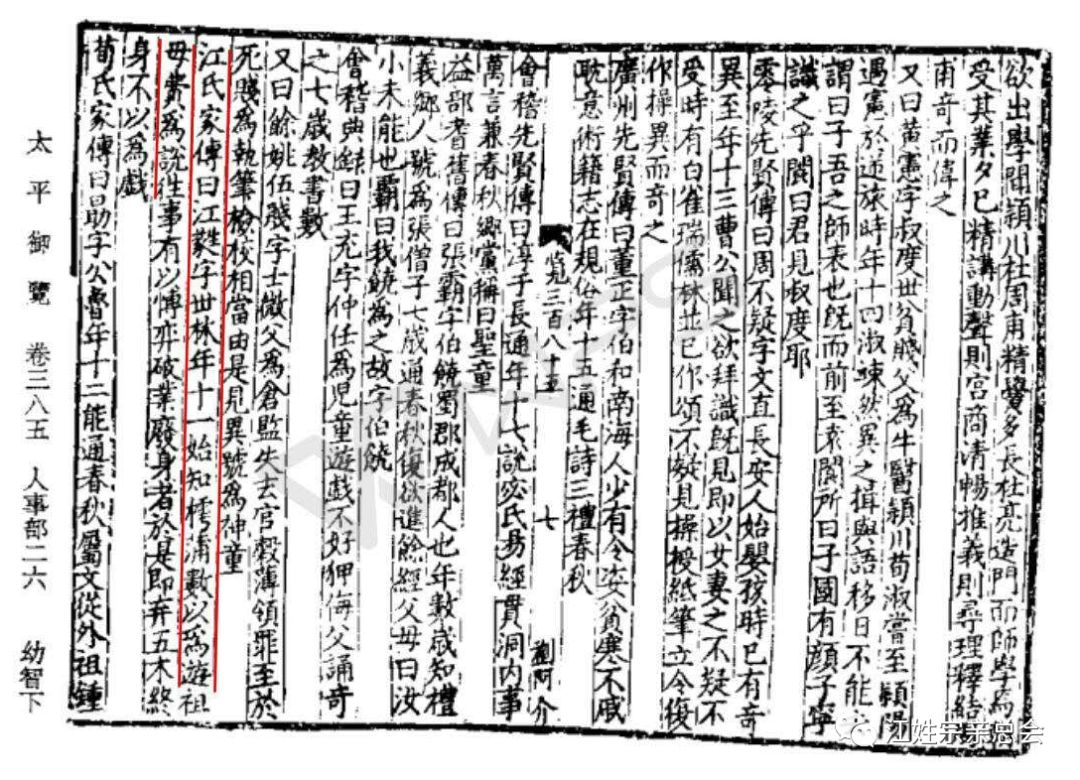 欲出學聞潁川杜周甫精黌多長杜亮造門而師學焉
受其業夕已精講動聲則宮商清暢推義則尋理釋結
甫奇而偉之
又曰黃憲字叔度世貧賤父為牛醫潁川荀淑嘗至潁陽
遇憲於逆旅時年十四淑竦然異之揖與語移日不能
謂曰子吾之師表也既而前至袁閬所曰子國有顏子寧
識之乎閬曰君見叔度耶
零陵先賢傳曰周不疑字文直長安人始嬰孩時已有奇
異至年十三曹公聞之欲拜識既見即以女妻之不疑不
受時有白雀瑞儒林並已作頌不疑見操授紙筆立令復
作操異而奇之
廣州先賢傳曰董正字伯和南海人少有令姿貧寒不戚
耽意術籍志在規俗年十五通毛詩三禮春秋
覽三百八十五 七 劉阿介
會稽先賢傳曰淳于長通年十七說宓氏易經貫洞內事
萬言兼春秋鄉黨稱曰聖童
益部耆舊傳曰張霸字伯饒蜀郡成都人也年數歲知禮
義鄉人號為張僧子七歲通春秋復欲進餘經父母曰汝
小未能也霸曰我饒為之故字伯饒
會稽典錄曰王充字仲任為兒童遊戲不好狎侮父誦奇
之七歲教書數
又曰餘姚伍賤字士微父為倉監失去官穀薄領罪至於
死賤為執筆檢校相當由是見異號為神童
江氏家傳曰江蕤字世林年十一始知樗蒲數以為遊祖
母費為說往事有以博弈破業廢身者於是即弃五木終
身不以為戲
荀氏家傳曰勗字公曾年十二能通春秋屬文從外祖鍾
太平御覽 卷三八五 人事部二六 幼智下
江姓宗亲总会